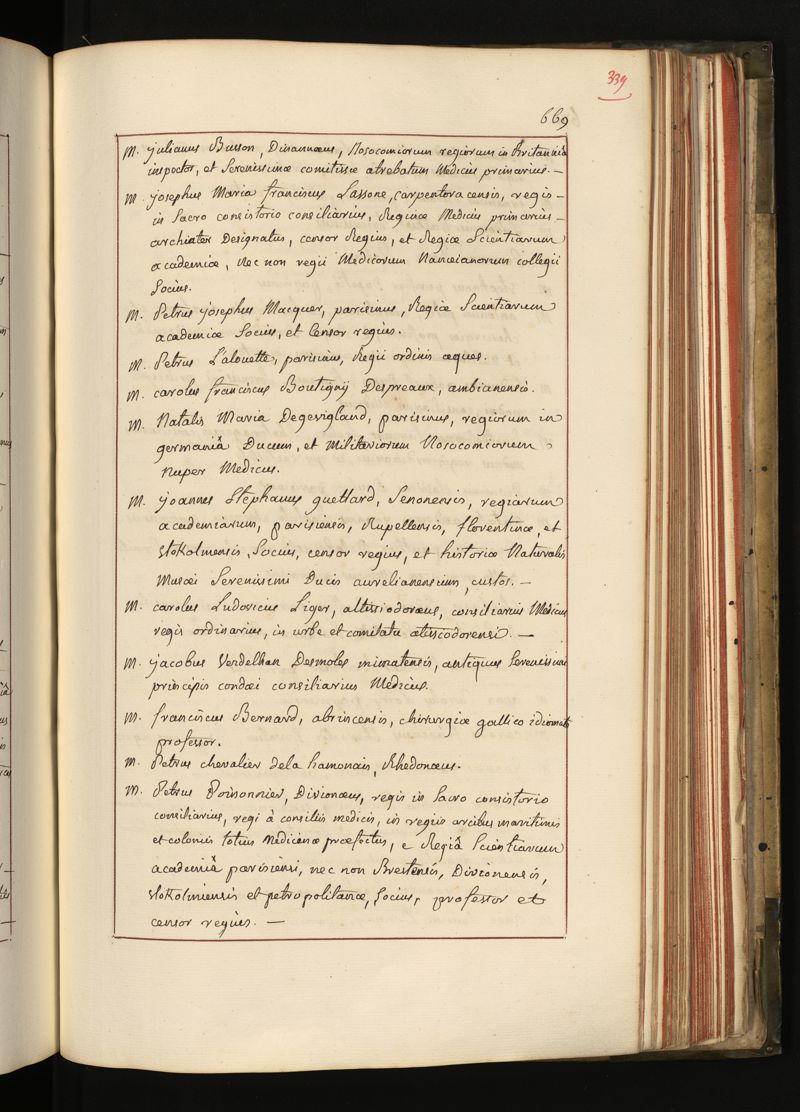 339
669
M. julianus Busson, Dinannæus, Nosocomiorum regiorum in Britanniâ
inspector, et Serenissimæ comitissæ atrebatum Medicus primarius. —
M. josephus Maria franciscus Lassone, carpentoracensis, regis -
in Sacro consistorio consiliarius, Reginæ Medicus primarius -
archiater Designatus, censor Regius, et Regiæ Scientiarum
academiæ, Nec non regii Medicorum Nanceianorum collegii
Socius.
M. Petrus josephus Macquer, parisinus, Regiæ Scientiarum
academiæ Socius, et Censor regius.
M. Petrus Lalouette, parisinus, Regii ordinis æques.
M. carolus franciscus Boutigny Despreaux, ambianensis.
M. Natalis Maria Degevigland, parisinus, regiorum in
germaniâ Ducum, et Militariorum Nosocomiorum
nuper Medicus.
M. joannes Stephanus guettard, Senonensis, regiarum
academiarum, parisiensis, Rupellensis, florentinæ, et
stokolmensis Socius, censor regius, et historiæ Naturalis
Musæi Serenissimi Ducis aurelianensium, custos. —
M. carolus Ludovicus Liger, altissiodoræus, consiliarius Medicus
regis ordinarius, in urbe et comitatu atissodorensi. —
M. jacobus Verdelhan Desmoles mimatensis, antiquus Serenissimi
principis condæi consiliarius Medicus.
M. franciscus Bernard, abrincensis, chirurgiæ gallico idiomate
professor.
M. Petrus chevalier dela hamonais, Rhedonæus.
M. Petrus Poissonnier, Divionæus, regis in Sacro consistorio
consiliarius, regi à consiliis medicis, in regiis arcibus maritimis
et coloniis totius Medicinæ præfectus, e Regiâ Scientiarum
academiâ parisiensi, nec non Brestensis, Divionensis,
stokolmiensis et petropolitanæ, Socius, professor et
censor regius. —